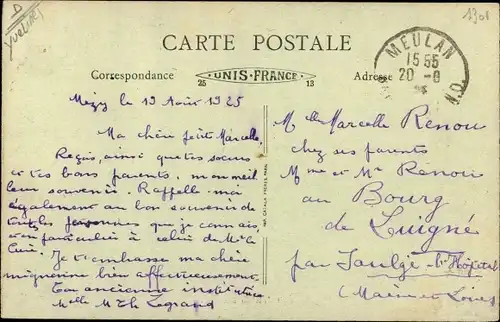 D
Yvelines
1308
CARTE POSTALE
Correspondance
25
UNIS-FRANCE
13
Adresse
MEULAN
15 55
20 -8
Mézy le 19 Août 1925
Ma chère petite Marcelle,
Reçois, ainsi que tes soeurs
et tes bons parents, mon meil
leur souvenir. Rappelle-moi
également au bon souvenir de
toutes les personnes que je connais
et en particulier à celui de Mr le
Curé.
Je t'embrasse ma chère
mignonne bien affectueusement
Ton ancienne institutrice
Melle M Th Legrand
Melle Marcelle Renou
chez ses parents
Mme et Mr Renou
au Bourg
de Luigné
par Saulgé-l'Hôpital
(Maine et Loire)